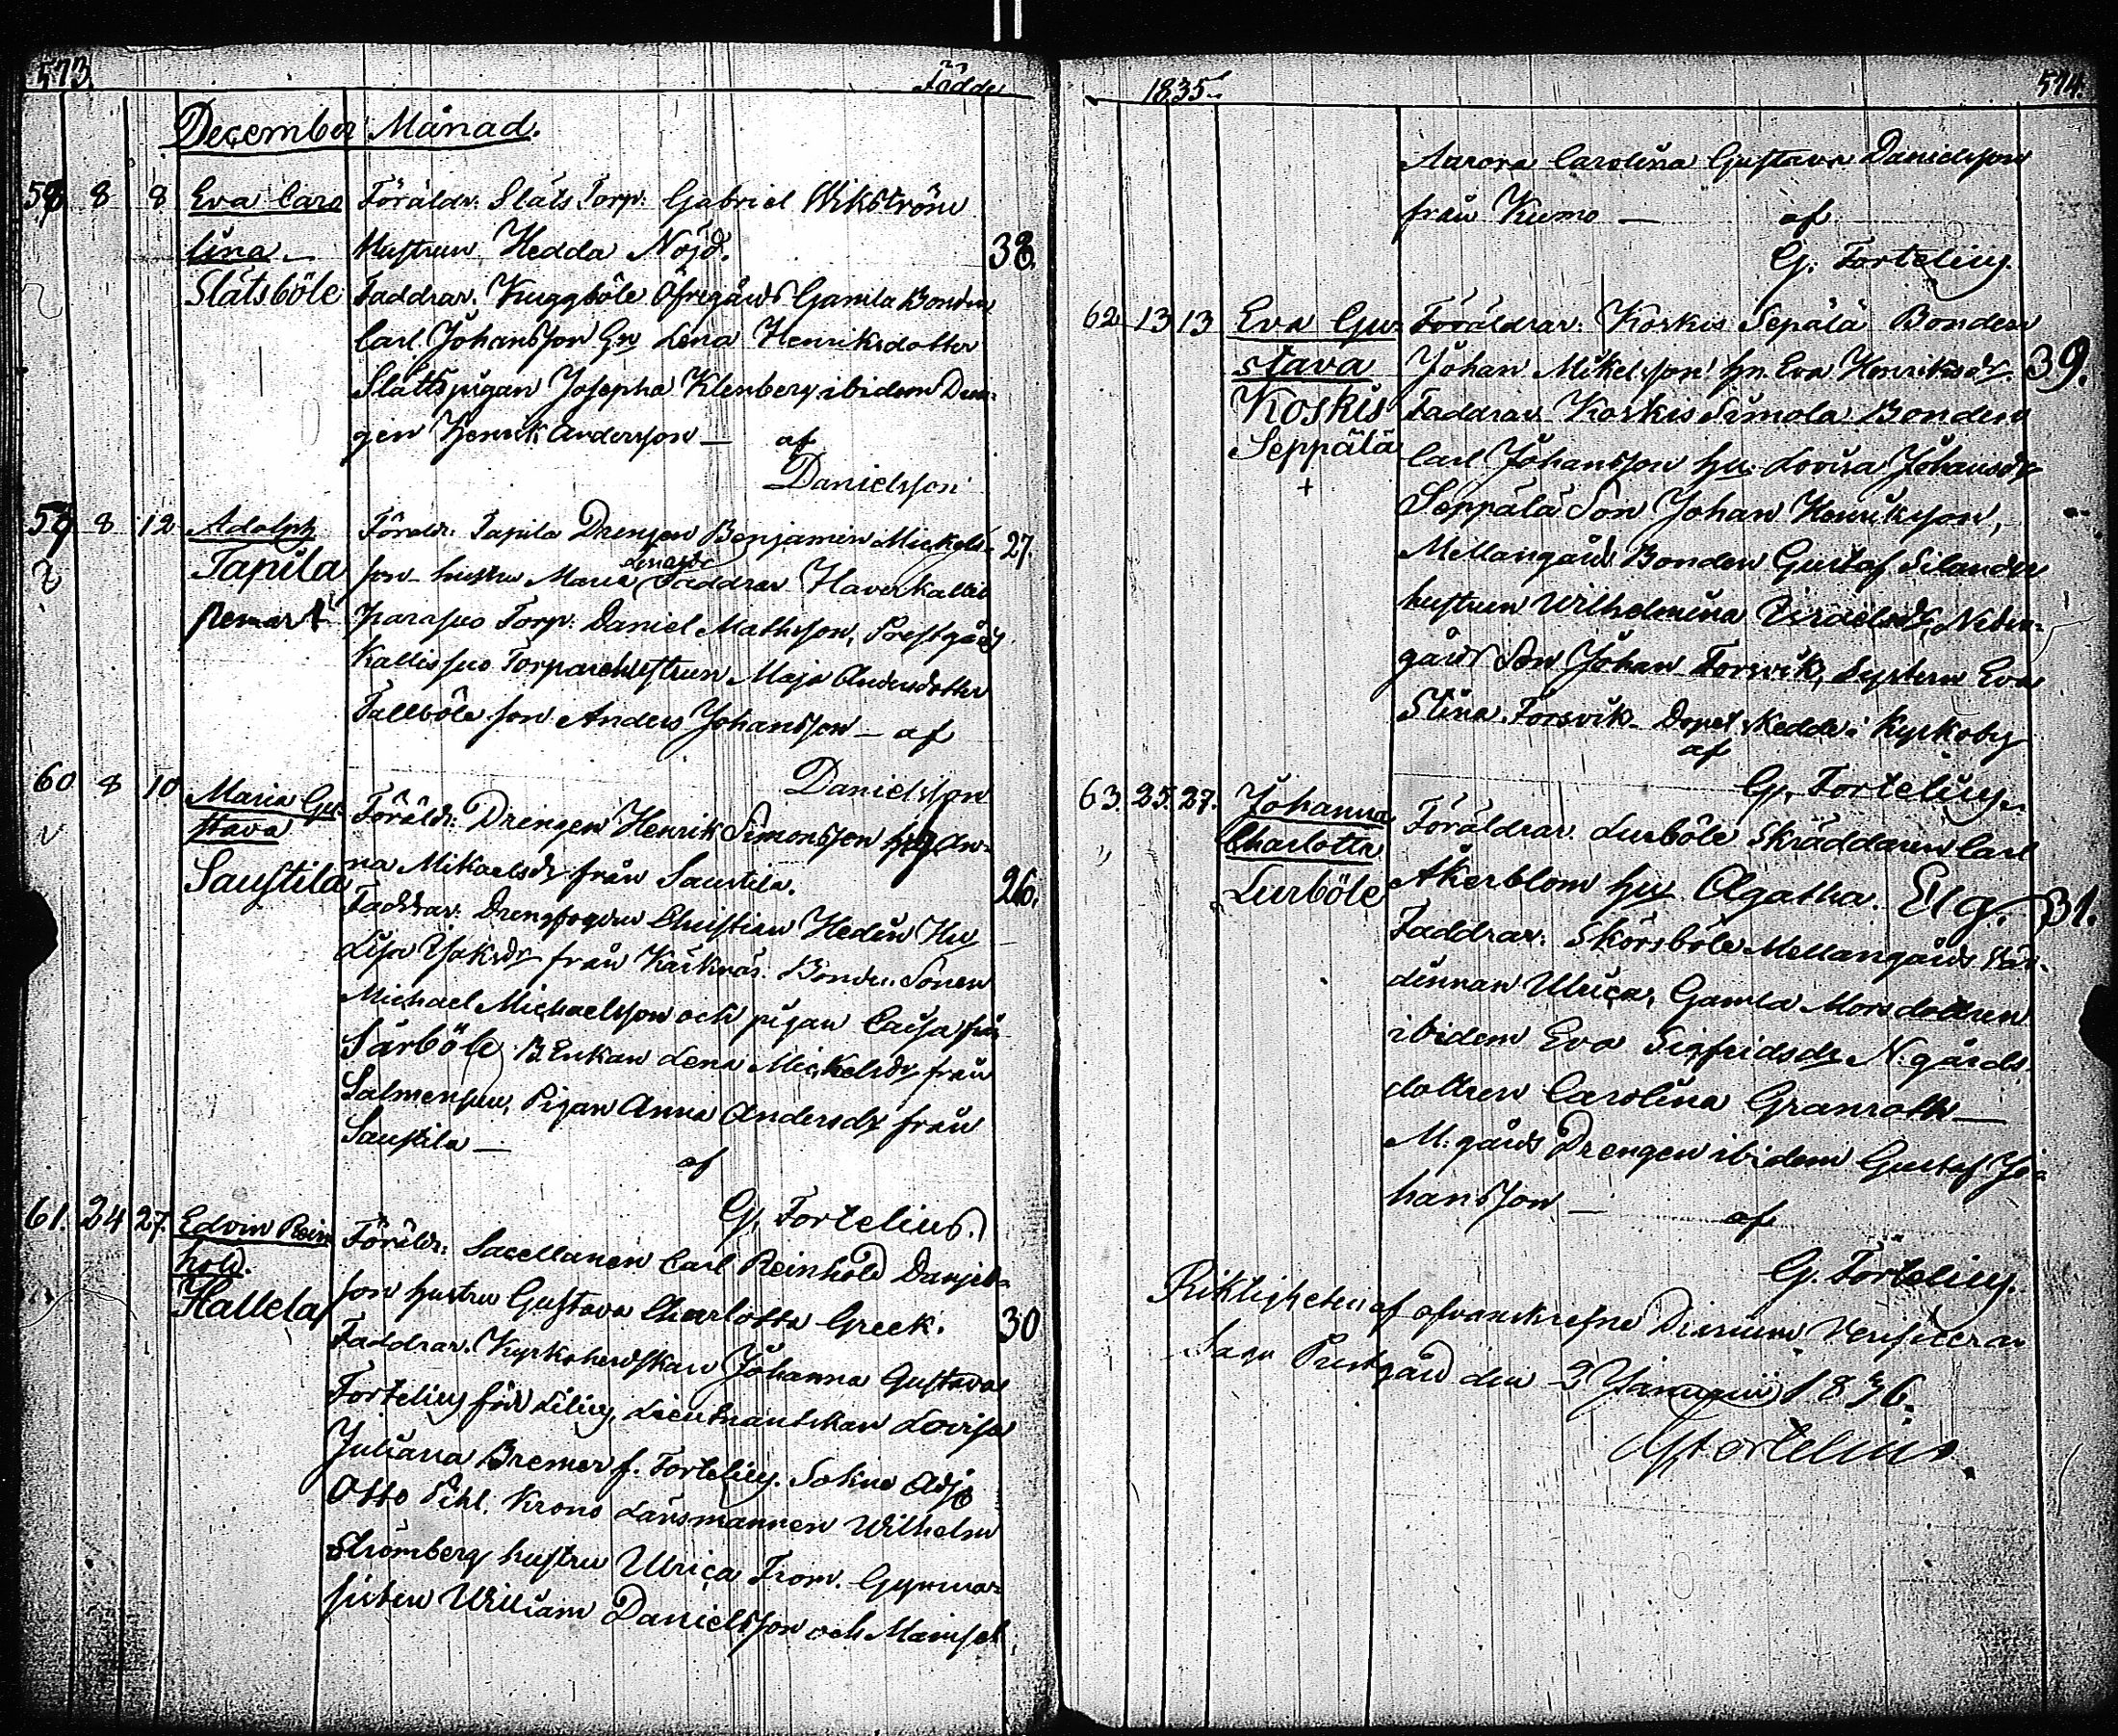 573. Födde
December Månad.
58 8 8 Eva Caro Föräldr. Släts Torp: Gabriel Wikström
lina Hustrun Hedda Nöjd. 38.
Slätsböle Faddrar. Knuggböle Öfregårds Gamla Bonden
Carl Johansson Hu Lena Henriksdotter
Slätts pigan Josepha Klenberg ibidem Dren-
gen Henrik Andersson — af
Danielsson
59 8 12 Adolph Föräldr. Tapila Drengen Benjamin Mickels- 27.
Tapila son hustru Maria Faddrar Haverkallio
Torp: Daniel Mathsson, Prestgårds
Kallissuo Torparehustrun Maja Andersdotter
Tallböle son Anders Johansson — af
Danielsson
60 8 10 Maria Gu- Föräldr: Drengen Henrik Simonsson hu An-
stava na Mikaelsdr från Saustila. 26.
Saustila Faddrar: Drengfogden Christian Hedén Hu
Lisa Isaksdr från Karknäs. Bonde Sonen
Michael Michaelsson och pigan Caisa från
Särböle. Enkan Lena Mickelsdr från
Salmensuu, Pigan Anna Andersdr från
Saustila —
af
G. Fortelius.
61. 24 27. Edvin Rein Föräldr: Sacellanen Carl Reinhold Daniels-
hold. son hustru Gustava Charlotta Greek. 30
Hallela Faddrar. Kyrkoherdskan Johanna Gustava
Fortelius född Lilius, Lieutnantskan Lovisa
Juliana Bremer f. Fortelius. Sokne Adj:
Otto Pihl. Krono Länsmannen Wilhelm
Strömberg hustru Ulrica From. Gymna-
sisten William Danielsson och Mamsel
1835. 574.
Aurora Carolina Gustava Danielsson
från Kumo — af
G. Fortelius.
62 13 13 Eva Gu- Föräldrar: Koskis Sepälä Bonden
stava Johan Mikelsson hu. Eva Henriksdr. 39.
Koskis Faddrar. Koskis Simola Bonden
Seppälä Carl Johansson hu. Lovisa Johansdr
+ Seppälä Son Johan Henriksson,
Mellangård Bonden Gustaf Silander
hustrun Wilhelmina Israelsdr, Neder-
gård Son Johan Forsvik, Systern Eva
Stina Forsvik. Dopet skedde i Kyrkoby
af
G. Fortelius.
63. 25. 27. Johanna Föräldrar. Lurböle Skräddaren Carl
Charlotta Åkerblom hu Agatha Elg. 31.
Lurböle Faddrar: Skörsböle Mellangårds Vär-
dinnan Ulrica, Gamla Mors dottren
ibidem Eva Sigfridsdr N. gårds
dottren Carolina Granroth —
M. gårds Drengen ibidem Gustaf Jo-
hansson — af
G. Fortelius.
Riktigheten af ofvanskrefne Diarium Verificerar
Sagu Prestgård den 2 Januarii 1836.
G Fortelius.